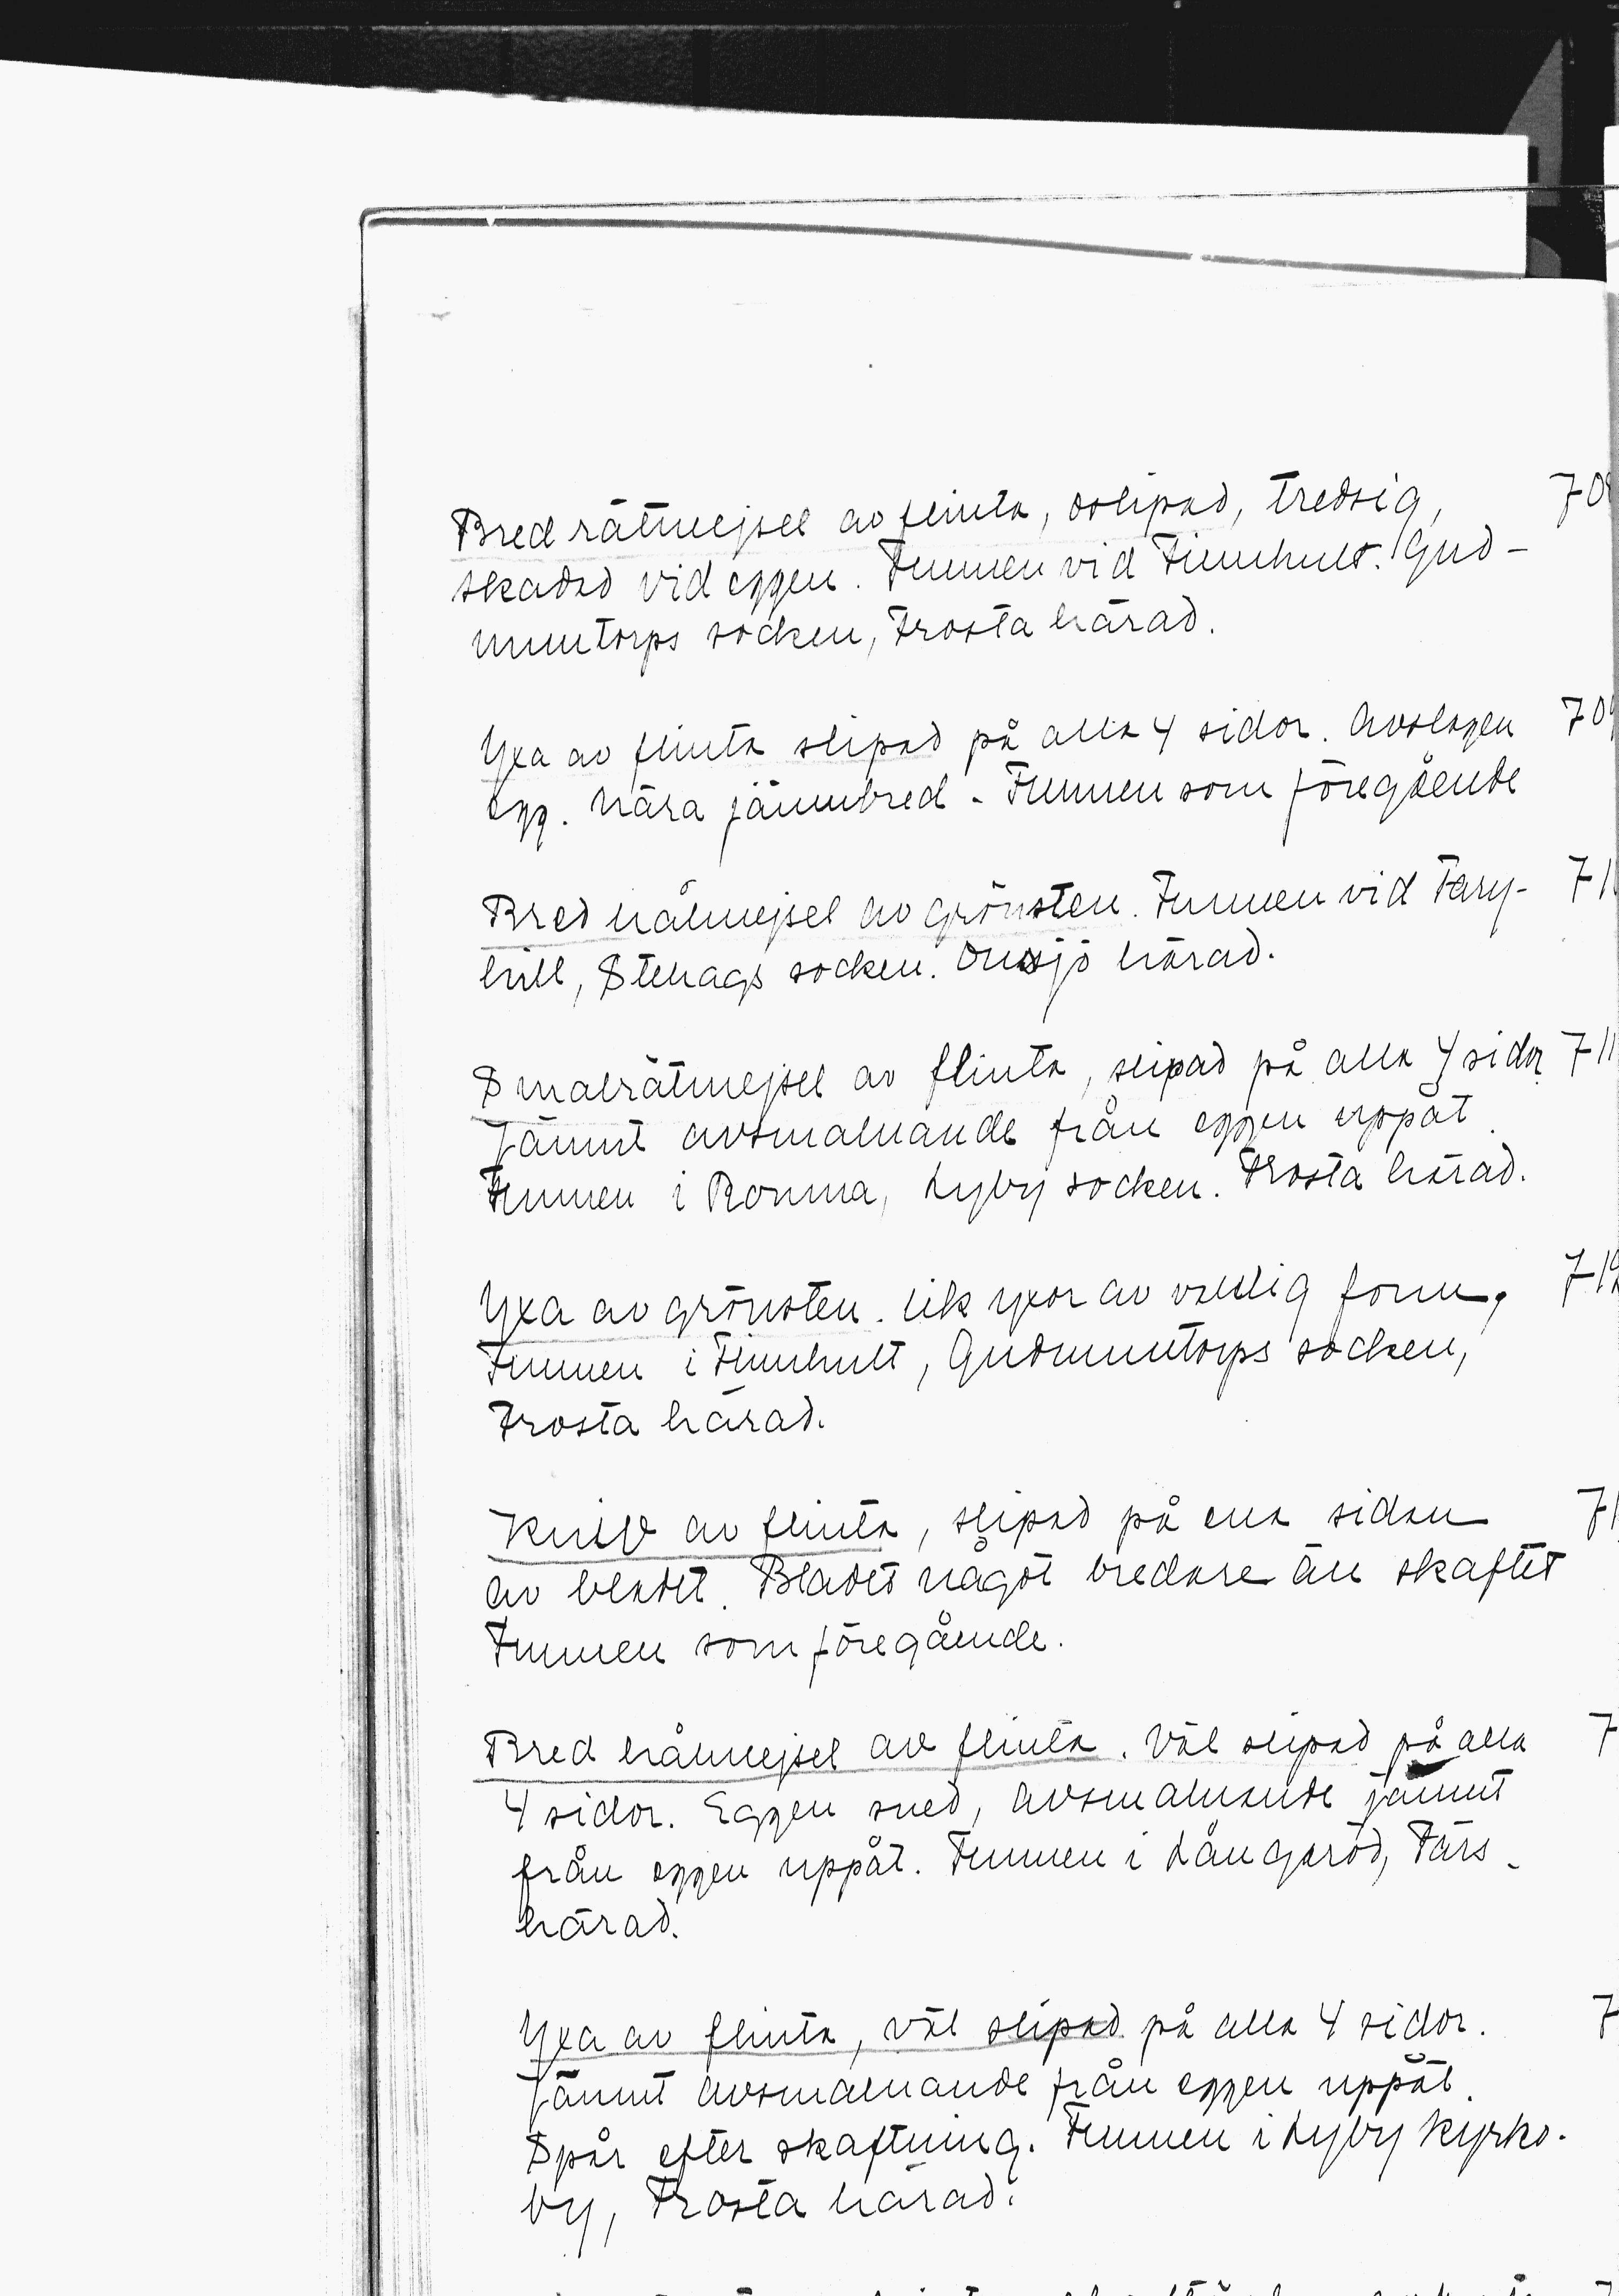 Bred rätmejsel av flinta, oslipad, tresidig, 708
skadad vid eggen. Funnen vid Finnhult. Gud-
muntorps socken, Frosta härad.
Yxa av flinta slipad på alla 4 sidor. Avslagen 709
egg. Nära jämnbred - Funnen som föregående
Bred hålmejsel av grönsten. Funnen vid 71
hill, Stehags socken. Onsjö härad.
Smal rätmejsel av flinta, slipad på alla 4 sidor 711
Jämnt avsmalnande från eggen uppåt.
Funnen i Ronna, Lyby socken. Frosta härad.
Yxa av grönsten. lik yxor av vanlig form. 712
Funnen i Finnhult, Gudmuntorps socken,
Frosta härad.
Kniv av flinta, slipad på ena sidan 71
av bladet. Bladet något bredare än skaftet
Funnen som föregående.
Bred hålmejsel av flinta. Väl slipad på alla 7
4 sidor. Eggen sned, avsmalnande jämnt
från eggen uppåt. Funnen i Långaröd, Färs
härad.
Yxa av flinta, väl slipad på alla 4 sidor. 7
Jämnt avsmalnande från eggen uppåt.
Spår efter skaftning. Funnen i Lyby kyrko-
by, Frosta härad.